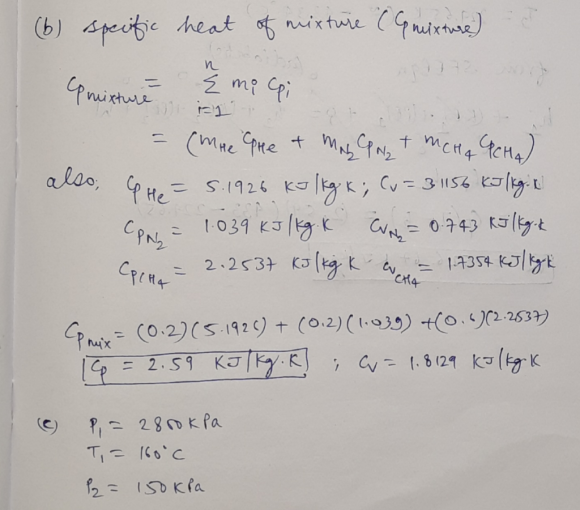 (b) specific heat of mixture (Cp mixture)
Cp mixture = n Σ i=1 mi Cpi
= (mHe CpHe + mN2 CpN2 + mCH4 CpCH4)
also; CpHe = 5.1926 KJ/kg K ; Cv = 3.1156 KJ/kg.K
CpN2 = 1.039 KJ/kg.K CvN2 = 0.743 KJ/kg.k
CpCH4 = 2.2537 KJ/kg.K CvCH4 = 1.7354 KJ/kg.k
Cpmix = (0.2)(5.1926) + (0.2)(1.039) + (0.6)(2.2537)
Cp = 2.59 KJ/kg.K ; Cv = 1.8129 KJ/kg.K
(c) P1 = 2800 KPa
T1 = 160°C
P2 = 150 KPa